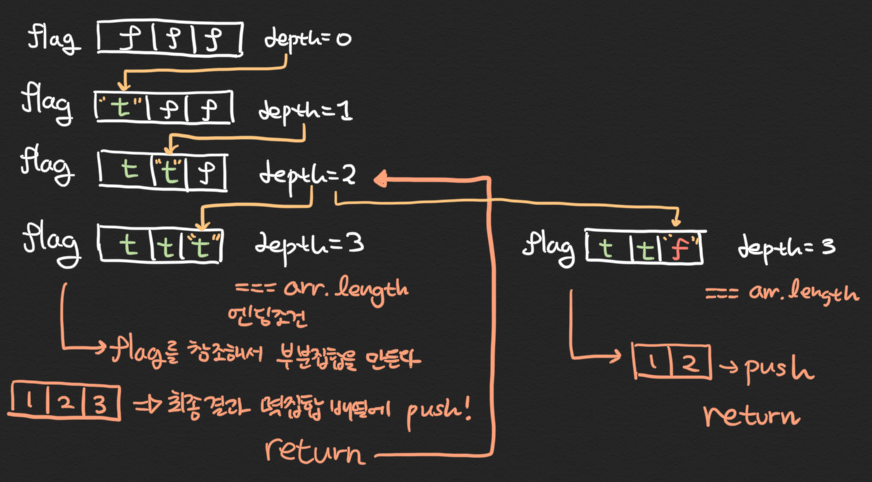 flag f f f depth=0
flag "t" f f depth=1
flag t "t" f depth=2
flag t t "t" depth=3
=== arr.length
엔딩조건
flag를 참조해서 부분집합을 만든다
1 2 3 ⇒ 최종결과 멱집합 배열에 push!
return
flag t t "f" depth=3
=== arr.length
1 2 → push
return